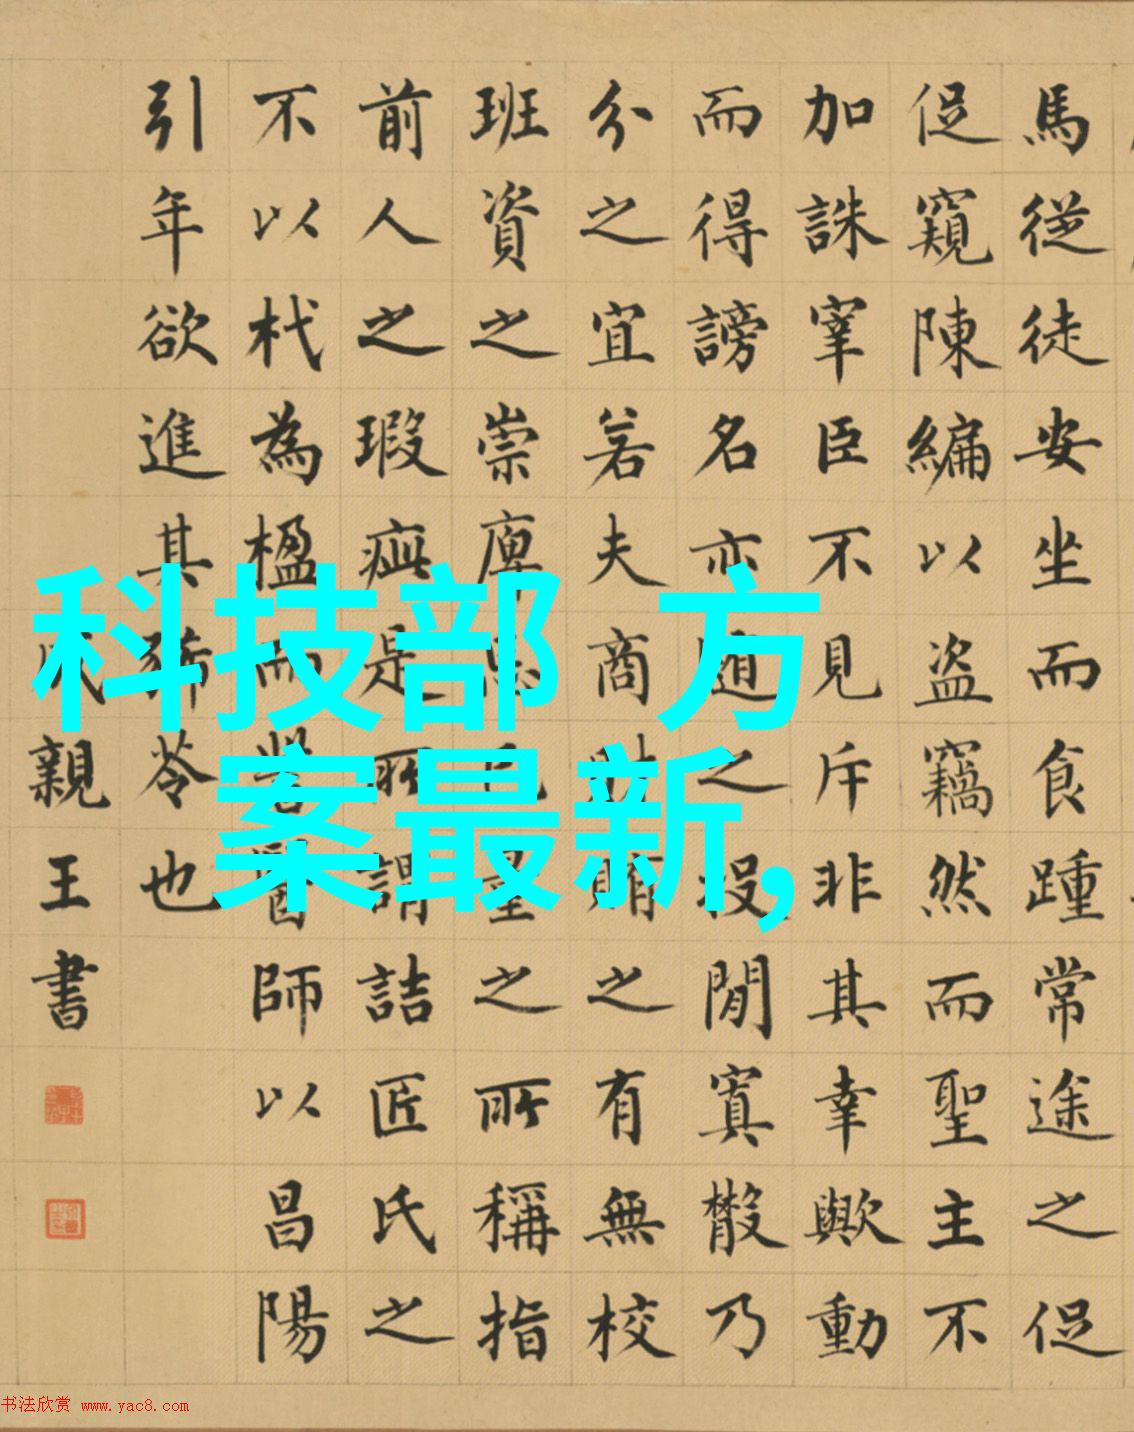 馬從徒安坐而食踵常途之促
促窺陳編以盜竊然而聖主不
加誅宰臣不見斥非其幸歟動
而得謗名亦隨之投閒寘散乃
分之宜若夫商財賄之有無校
班資之崇庳忘己量之所稱指
前人之瑕疵是所謂詰匠氏之
不以杙為楹而訾醫師以昌陽
引年欲進其豨苓也
成親王書
科技部 方
案最新,
书法欣赏 www.yac8.com